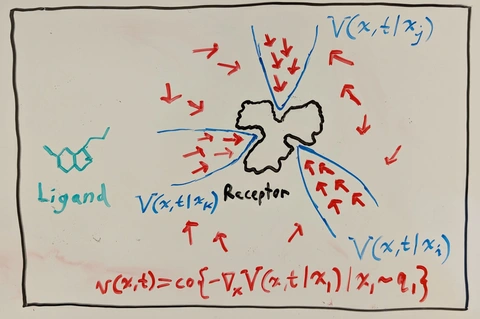 V(x,t|xⱼ)
Ligand
V(x,t|xₖ)
Receptor
V(x,t|xᵢ)
v(x,t)=co{-∇ₓV(x,t|x₁)|x₁~q₁}